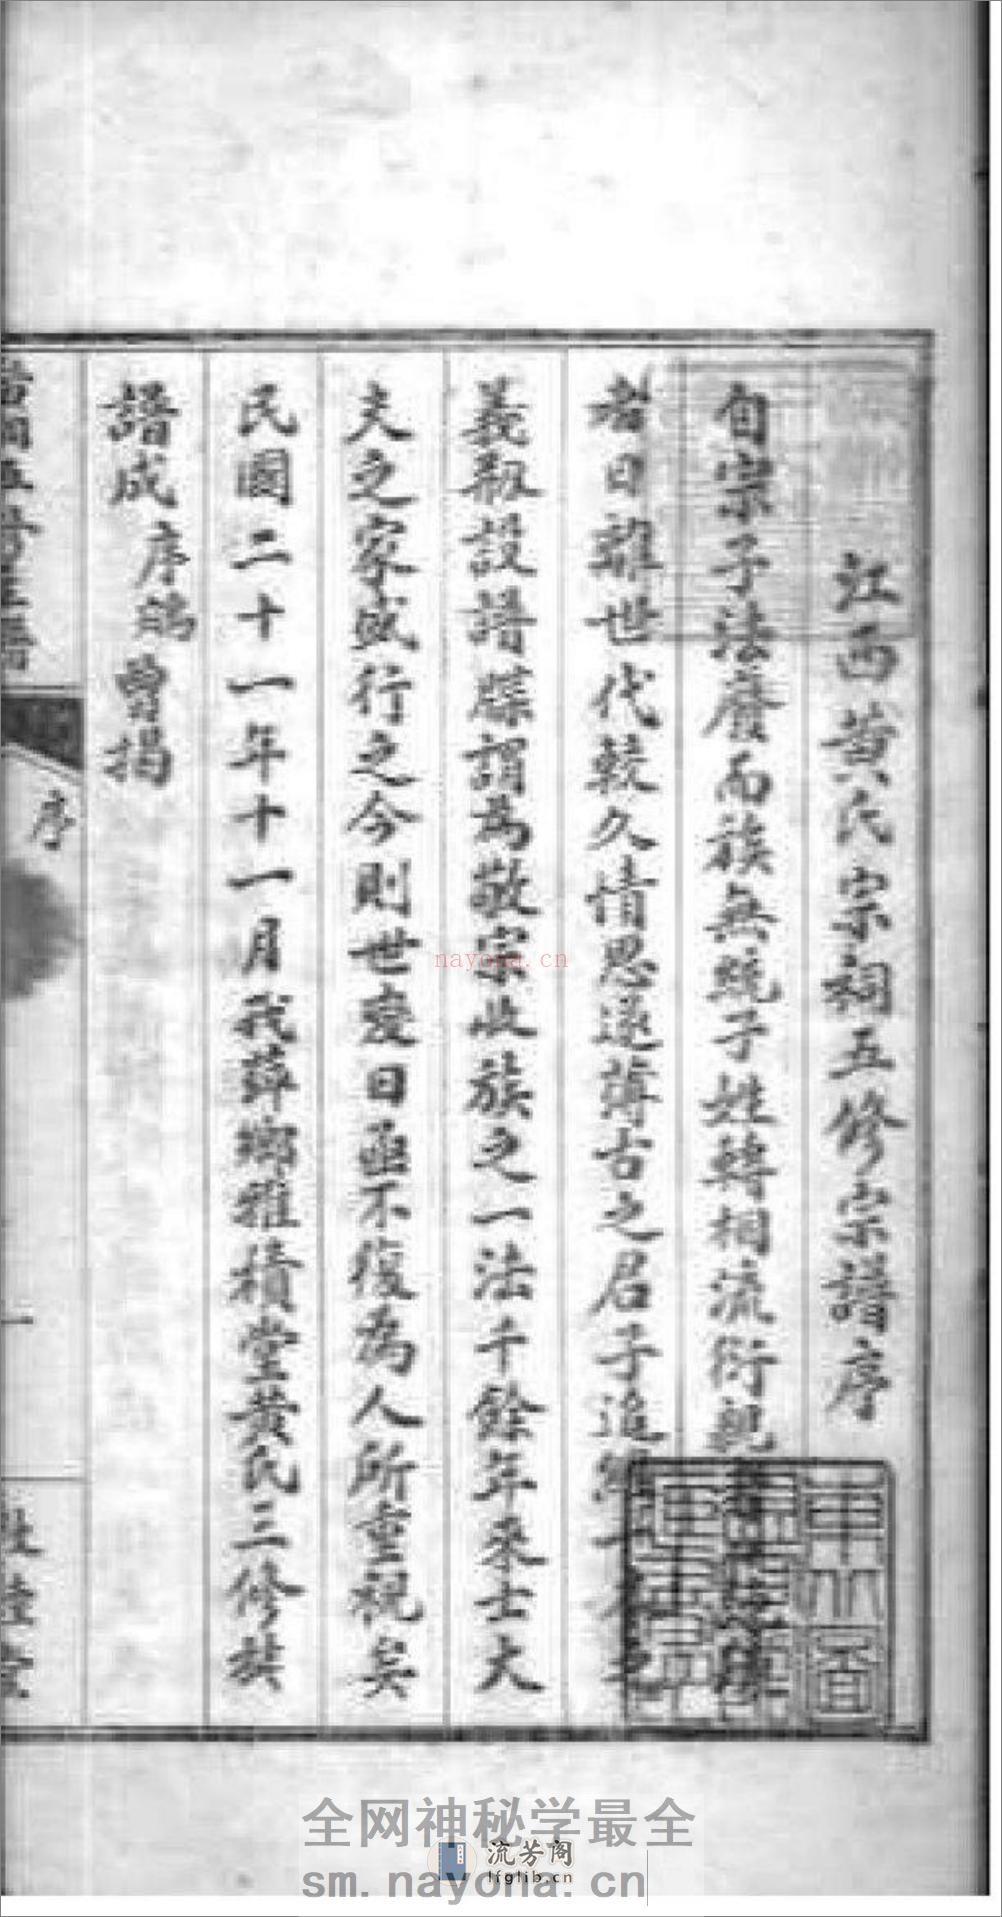 江西黄氏宗祠五修宗譜序
自宗子法廢而族無統子姓轉相流衍親
者日離世代較久情思遂薄古之君子追
義剏設譜牒謂為敬宗收族之一法千餘年來士大
夫之家咸行之今則世變日亟不復為人所重視矣
民國二十一年十一月我萍鄉雅積堂黄氏三修族
譜成序鵠曾揭
序
一
nayona.cn
全网神秘学最全
流芳阁
lfglib.cn
sm.nayona.cn